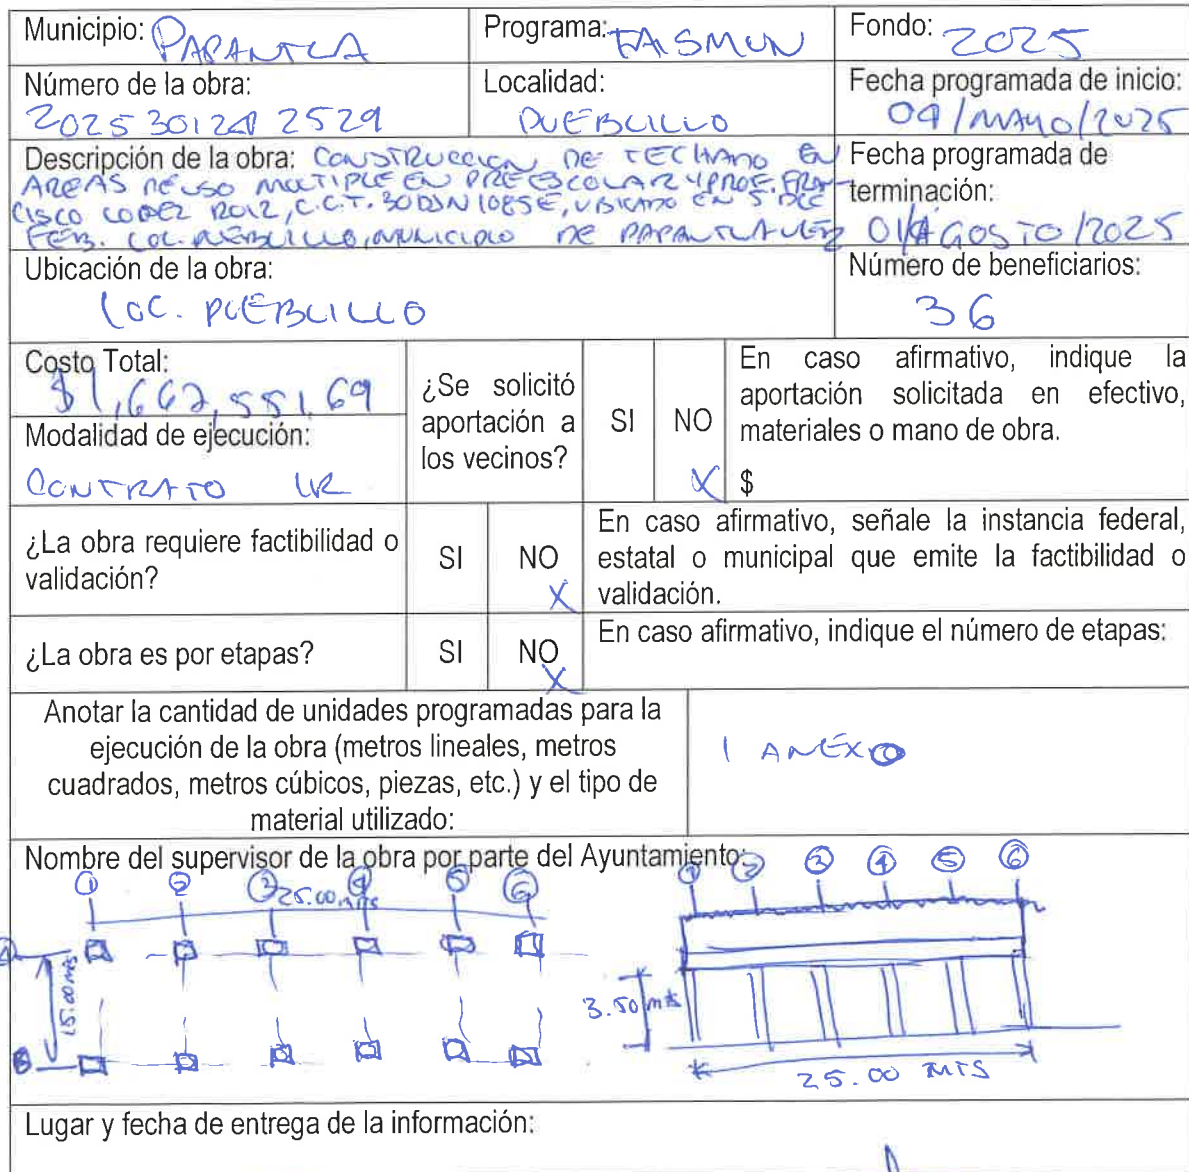 Municipio: PAPANTLA
Programa: FAISMUN
Fondo: 2025
Número de la obra:
Localidad:
Fecha programada de inicio:
2025 30124 2529
PUEBLILLO
09/MAYO/2025
Descripción de la obra: CONSTRUCCION DE TECHADO EN
AREAS DE USO MULTIPLE EN PREESCOLAR PROF. FRAN-
CISCO LOPEZ RUIZ, C.C.T. UBICADO EN 5 DE
FEB. LOC. PUEBLILLO, MUNICIPIO DE PAPANTLA VER
Fecha programada de
terminación:
01/AGOSTO/2025
Ubicación de la obra:
LOC. PUEBLILLO
Número de beneficiarios:
36
Costo Total:
$1,662,551.69
Modalidad de ejecución:
CONTRATO
¿Se solicitó
aportación a
los vecinos?
SI
NO
X
En caso afirmativo, indique la
aportación solicitada en efectivo,
materiales o mano de obra.
$
¿La obra requiere factibilidad o
validación?
SI
NO
X
En caso afirmativo, señale la instancia federal,
estatal o municipal que emite la factibilidad o
validación.
¿La obra es por etapas?
SI
NO
X
En caso afirmativo, indique el número de etapas:
Anotar la cantidad de unidades programadas para la
ejecución de la obra (metros lineales, metros
cuadrados, metros cúbicos, piezas, etc.) y el tipo de
material utilizado:
1 ANEXO
Nombre del supervisor de la obra por parte del Ayuntamiento:
1 2 3 4 5 6
25.00 mts
15.00 mts
B
1 2 3 4 5 6
3.50 mts
25.00 MTS
Lugar y fecha de entrega de la información: